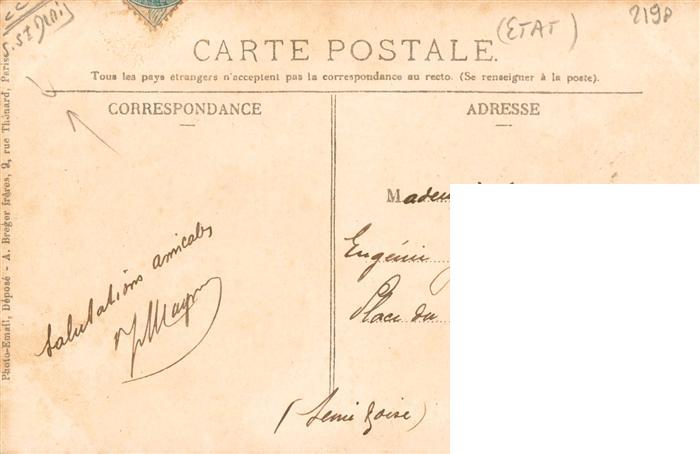 (ETAT)
2198
CARTE POSTALE.
Tous les pays étrangers n'acceptent pas la correspondance au recto. (Se renseigner à la poste).
CORRESPONDANCE
ADRESSE
Salutations amicales
Eugénie
Place du
Photo-Email, Déposé - A. Breger frères, 9, rue Thénard, Paris